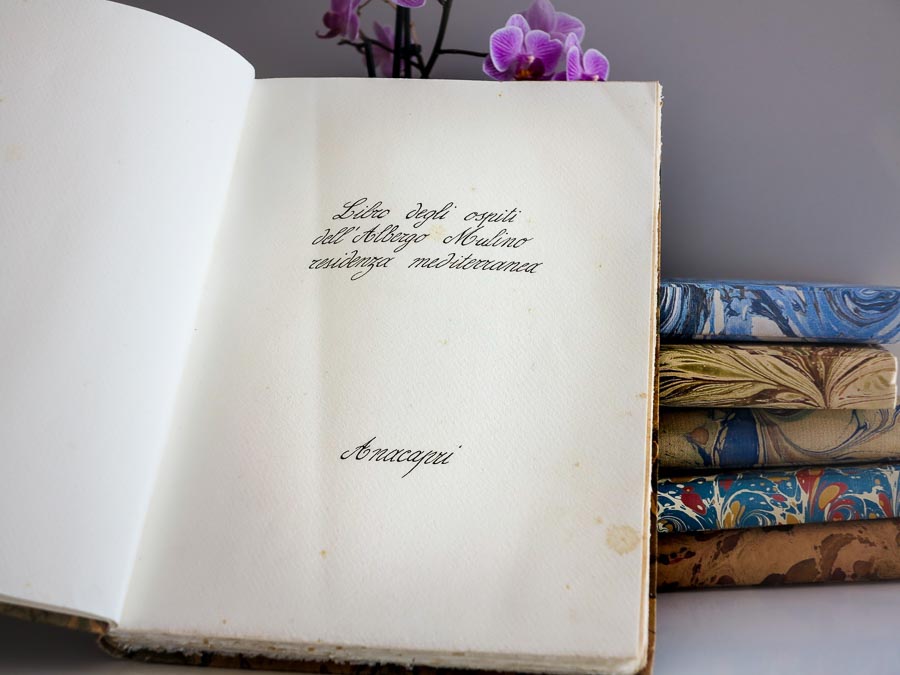 Libro degli ospiti
dell'Albergo Mulino
residenza mediterranea
Anacapri